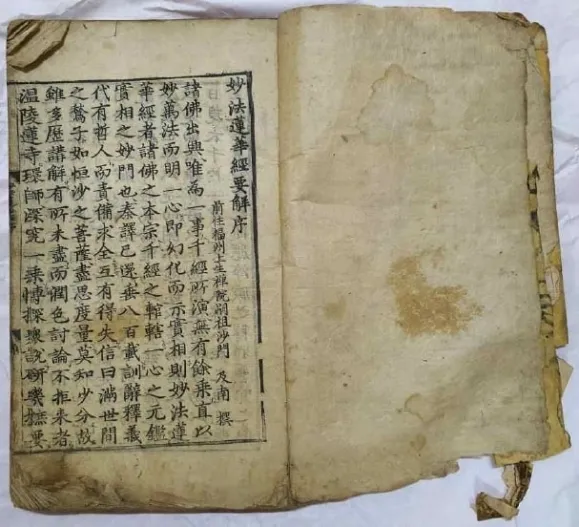 妙法蓮華經要解序
前住福州上生禪院嗣祖沙門 及南 撰
諸佛出興唯為一事千經所演無有餘乘直以
妙萬法而明一心即幻化而示實相則妙法蓮
華經者諸佛之本宗千經之輨轄一心之元鑑
實相之妙門也秦譯已還垂八百載訓辭釋義
代有哲人而責備求全互有得失信曰滿世間
之鶖子如恒沙之菩薩盡思度量莫知少分故
雖多歷講解有所未盡而潤色討論不拒來者
温陵蓮寺環師深究一乘愽探說研摭要